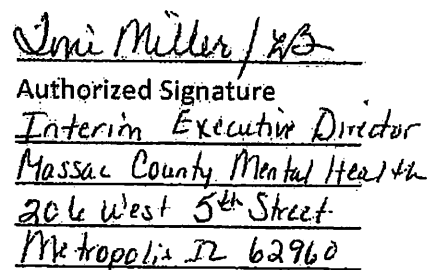 Toni Miller / LB
Authorized Signature
Interim Executive Director
Massac County Mental Health
206 West 5th Street
Metropolis IL 62960